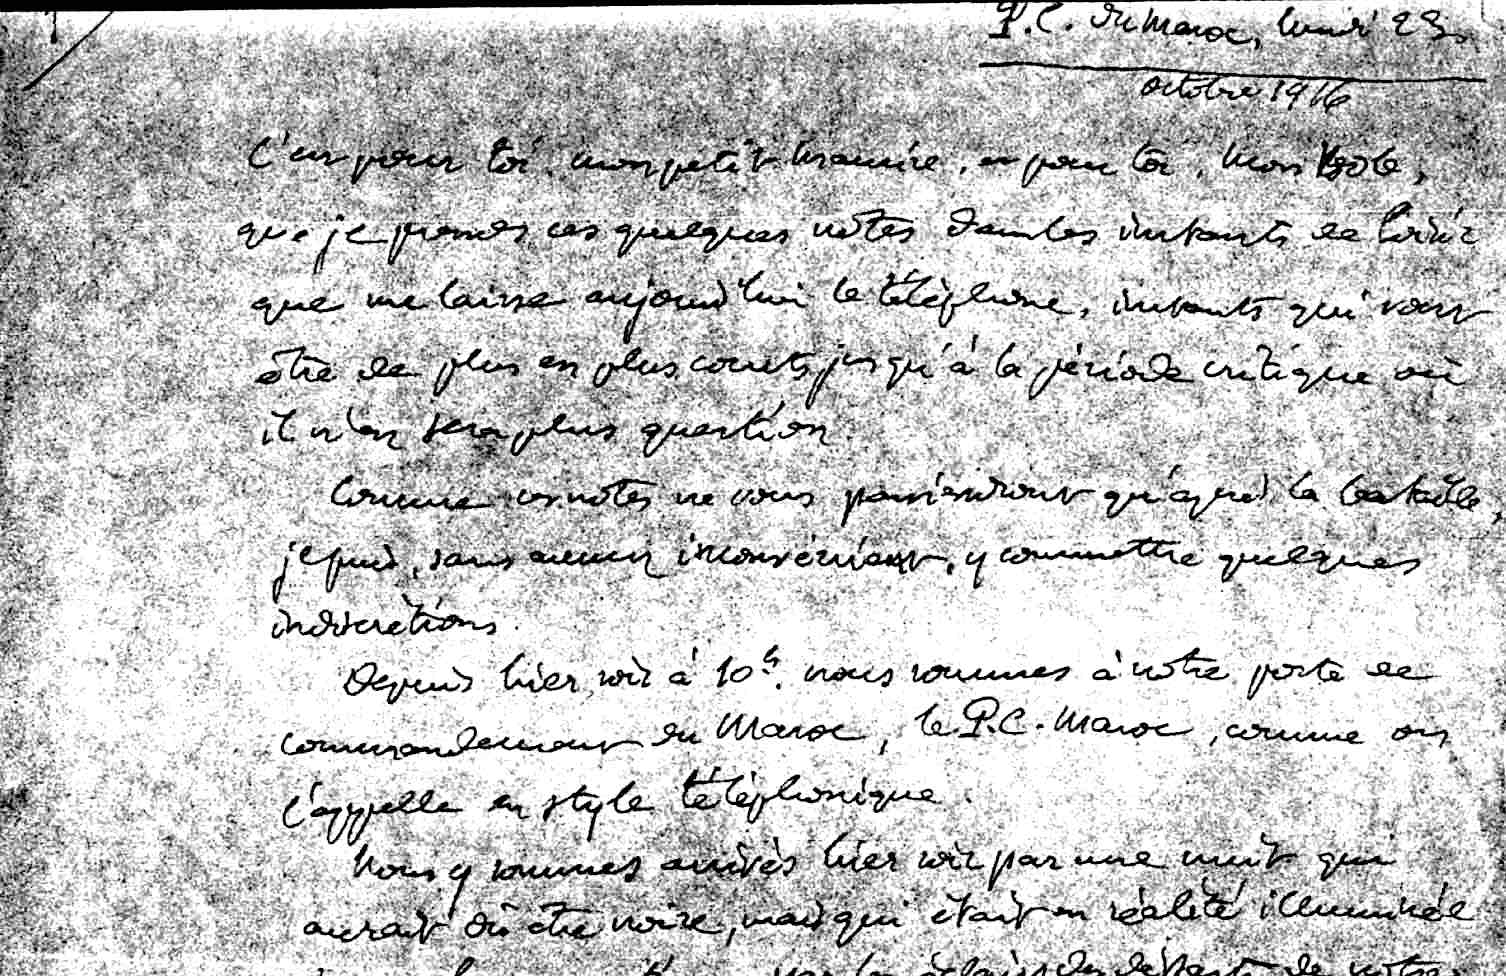 P.C. du Maroc, lundi 23
octobre 1916
C'est pour toi, mon petit Maurice, et pour toi, mon
que je prends ces quelques notes dans les instants de loisir
que me laisse aujourd'hui le téléphone, instants qui vont
être de plus en plus courts jusqu'à la période critique où
il n'en sera plus question.
Comme ces notes ne vous parviendront qu'après la bataille,
je puis, sans aucun inconvénient, y commettre quelques
indiscrétions.
Depuis hier soir à 10h. nous sommes à notre poste de
commandement du Maroc, le P.C. Maroc, comme on
l'appelle en style téléphonique.
Nous y sommes arrivés hier soir par une nuit qui
aurait dû être noire, mais qui était en réalité illuminée
par les éclairs des départs de notre